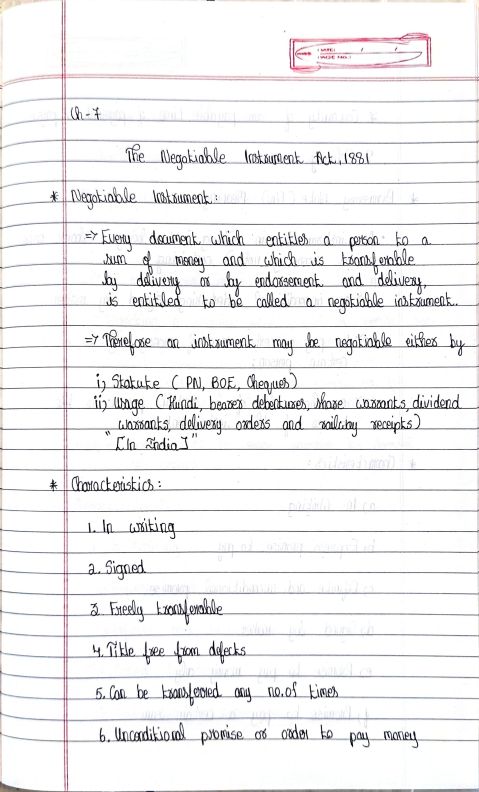 DATE: / /
PAGE NO.:
Ch-7
The Negotiable Instrument Act, 1881
* Negotiable Instrument :
=> Every document which entitles a person to a
sum of money and which is transferable
by delivery or by endorsement and delivery,
is entitled to be called a negotiable instrument..
=> Therefore an instrument may be negotiable either by
i) Statute ( PN, BOE, Cheques)
ii) Usage ( Hundi, bearer debentures, share warrants, dividend
warrants, delivery orders and railway receipts)
"[In India]"
* Characteristics :
1. In writing
2. Signed
3. Freely transferable
4. Title free from defects
5. Can be transferred any no. of times
6. Unconditional promise or order to pay money